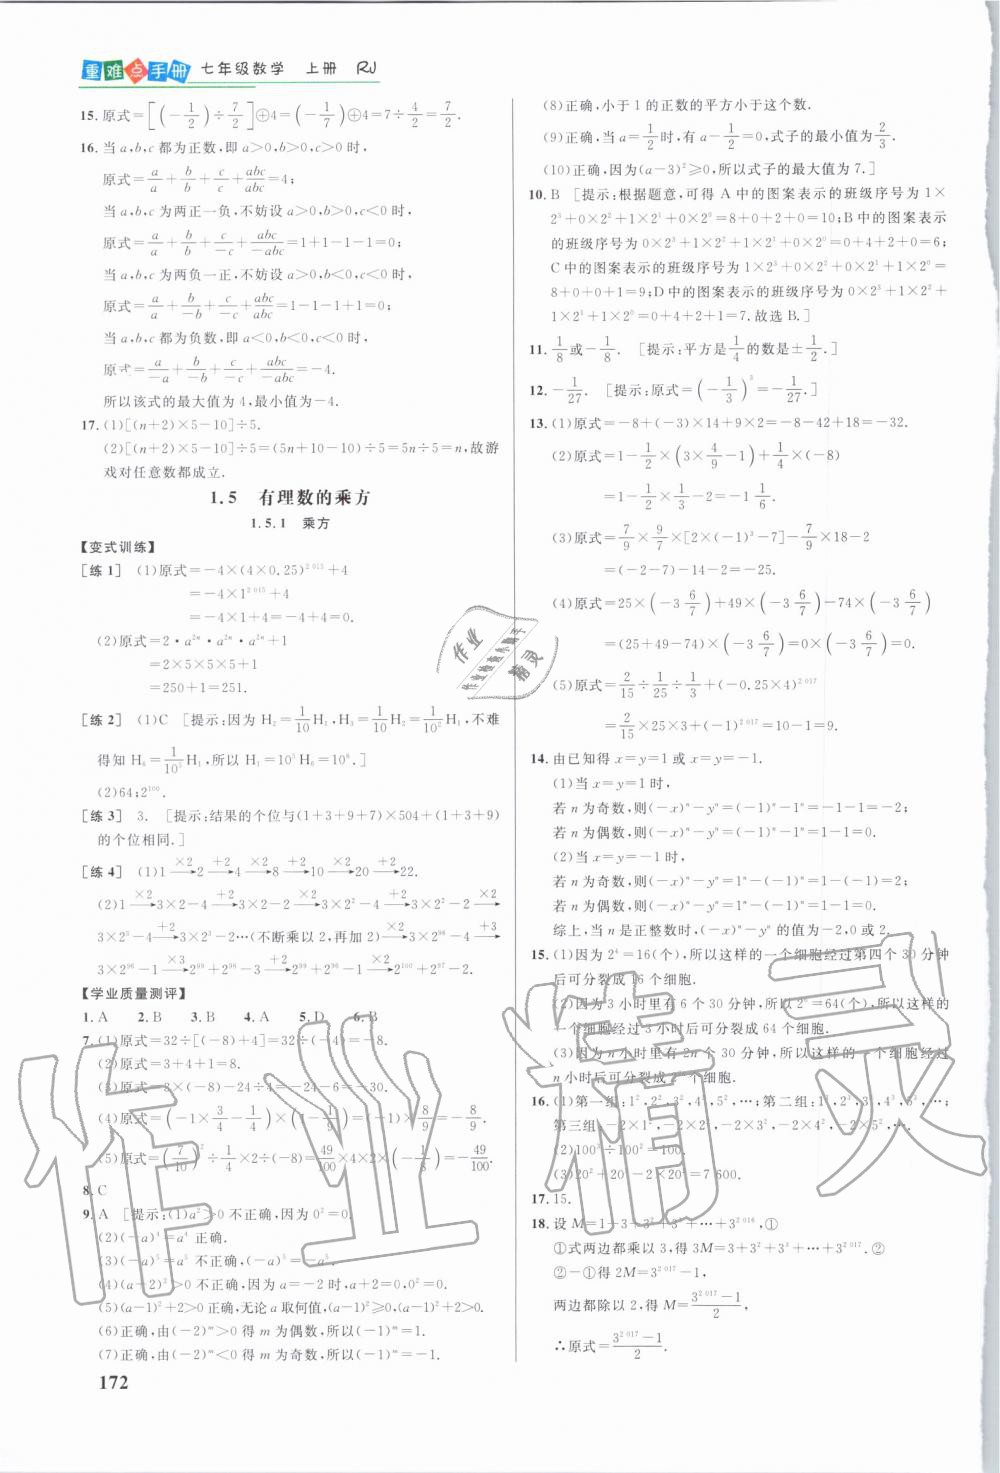 重难点手册 七年级数学 上册 RJ
15. 原式=[(-1/2)÷7/2]⊕4=(-1/7)⊕4=7÷4/2=7/2.
16. 当a,b,c都为正数,即a>0,b>0,c>0时,
原式=a/a+b/b+c/c+abc/abc=4;
当a,b,c为两正一负,不妨设a>0,b>0,c<0时,
原式=a/a+b/b+c/-c+abc/-abc=1+1-1-1=0;
当a,b,c为两负一正,不妨设a>0,b<0,c<0时,
原式=a/a+b/-b+c/-c+abc/abc=1-1-1+1=0;
当a,b,c都为负数,即a<0,b<0,c<0时,
原式=a/-a+b/-b+c/-c+abc/-abc=-4.
所以该式的最大值为4,最小值为-4.
17. (1)[(n+2)×5-10]÷5.
(2)[(n+2)×5-10]÷5=(5n+10-10)÷5=5n÷5=n,故游
戏对任意数都成立.
1.5 有理数的乘方
1.5.1 乘方
【变式训练】
[练1] (1)原式=-4×(4×0.25)²⁰¹⁵+4
=-4×1²⁰¹⁵+4
=-4×1+4=-4+4=0.
(2)原式=2·a²ⁿ·a²ⁿ·a²ⁿ+1
=2×5×5×5+1
=250+1=251.
[练2] (1)C [提示:因为H₂=1/10H₁,H₃=1/10H₂=1/10²H₁,不难
得知H₆=1/10⁵H₁,所以H₁=10⁵H₆=10⁶.]
(2)64;2¹⁰⁰.
[练3] 3. [提示:结果的个位与(1+3+9+7)×504+(1+3+9)
的个位相同.]
[练4] (1)1 ×2→ 2 +2→ 4 ×2→ 8 +2→ 10 ×2→ 20 +2→ 22.
(2)1 ×2→ 3×2-4 +2→ 3×2-2 ×2→ 3×2²-4 +2→ 3×2²-2 ×2→
3×2³-4 +2→ 3×2³-2…(不断乘以2,再加2) ×2→ 3×2⁹⁶-4 +3→
3×2⁹⁶-1 ×3→ 2⁹⁹+2⁹⁶-3 +2→ 3×2⁹⁶-1 ×2→ 2¹⁰⁰+2⁹⁷-2.
【学业质量测评】
1. A 2. B 3. B 4. A 5. D 6. B
7. (1)原式=32÷[(-8)+4]=32÷(-4)=-8.
(2)原式=3+4+1=8.
(3)原式=3×(-8)-24÷4=-24-6=-30.
(4)原式=(-1×3/4-1/4)×(1-1/9)=(-1)×8/9=-8/9.
(5)原式=(7/10)²÷1/4×2÷(-8)=49/100×4×2×(-1/8)=-49/100.
8. C
9. A [提示:(1)a²>0不正确,因为0²=0.
(2)(-a)⁴=a⁴正确.
(3)(-a)⁵=a⁵不正确,(-a)⁵=-a⁵.
(4)(a-2)²>0不正确,因为a=-2时,a+2=0,0²=0.
(5)(a-1)²+2>0正确,无论a取何值,(a-1)²≥0,(a-1)²+2>0.
(6)正确,由(-2)ᵐ>0得m为偶数,所以(-1)ᵐ=1.
(7)正确,由(-2)ᵐ<0得m为奇数,所以(-1)ᵐ=-1.
172
(8)正确,小于1的正数的平方小于这个数.
(9)正确,当a=1/2时,有a-1/2=0,式子的最小值为2/3.
(10)正确,因为(a-3)²≥0,所以式子的最大值为7.]
10. B [提示:根据题意,可得A中的图案表示的班级序号为1×
2³+0×2²+1×2¹+0×2⁰=8+0+2+0=10;B中的图案表示
的班级序号为0×2³+1×2²+1×2¹+0×2⁰=0+4+2+0=6;
C中的图案表示的班级序号为1×2³+0×2²+0×2¹+1×2⁰=
8+0+0+1=9;D中的图案表示的班级序号为0×2³+1×2²+
1×2¹+1×2⁰=0+4+2+1=7.故选B.]
11. 1/8或-1/8. [提示:平方是1/4的数是±1/2.]
12. -1/27. [提示:原式=(-1/3)³=-1/27.]
13. (1)原式=-8+(-3)×14+9×2=-8-42+18=-32.
(2)原式=1-1/2×(3×4/9-1)+1/4×(-8)
=1-1/2×1/3-2=-1 1/6.
(3)原式=7/9×9/7×[2×(-1)³-7]-7/9×18-2
=(-2-7)-14-2=-25.
(4)原式=25×(-3 6/7)+49×(-3 6/7)-74×(-3 6/7)
=(25+49-74)×(-3 6/7)=0.
(5)原式=2/15÷1/25÷1/3+(-0.25×4)²⁰¹⁷
=2/15×25×3+(-1)²⁰¹⁷=10-1=9.
14. 由已知得x=y=1或x=y=-1.
(1)当x=y=1时,
若n为奇数,则(-x)ⁿ-yⁿ=(-1)ⁿ-1ⁿ=-1-1=-2;
若n为偶数,则(-x)ⁿ-yⁿ=(-1)ⁿ-1ⁿ=1-1=0.
(2)当x=y=-1时,
若n为奇数,则(-x)ⁿ-yⁿ=1ⁿ-(-1)ⁿ=1-(-1)=2;
若n为偶数,则(-x)ⁿ-yⁿ=1ⁿ-(-1)ⁿ=1-1=0.
综上,当n是正整数时,(-x)ⁿ-yⁿ的值为-2,0或2.
15. (1)因为2⁴=16(个),所以这样的一个细胞经过第四个30分钟
后可分裂成16个细胞.
(2)因为3小时里有6个30分钟,所以2⁶=64(个),所以这样的
一个细胞经过3小时后可分裂成64个细胞.
(3)因为n小时里有2n个30分钟,所以这样的一个细胞经过
n小时后可分裂成2²ⁿ个细胞.
16. (1)第一组:1²,2²,3²,4²,5²,…;第二组:1³,2³,3³,4³,5³,…;
第三组:-2×1²,-2×2²,-2×3²,-2×4²,-2×5²,….
(2)100³-100²-100².
(3)20²+20³-2×20²=7 600.
17. 15.
18. 设M=1+3+3²+3³+…+3²⁰¹⁶,①
①式两边都乘以3,得3M=3+3²+3³+…+3²⁰¹⁷.②
②-①得2M=3²⁰¹⁷-1,
两边都除以2,得M=(3²⁰¹⁷-1)/2,
∴原式=(3²⁰¹⁷-1)/2.
作业精灵